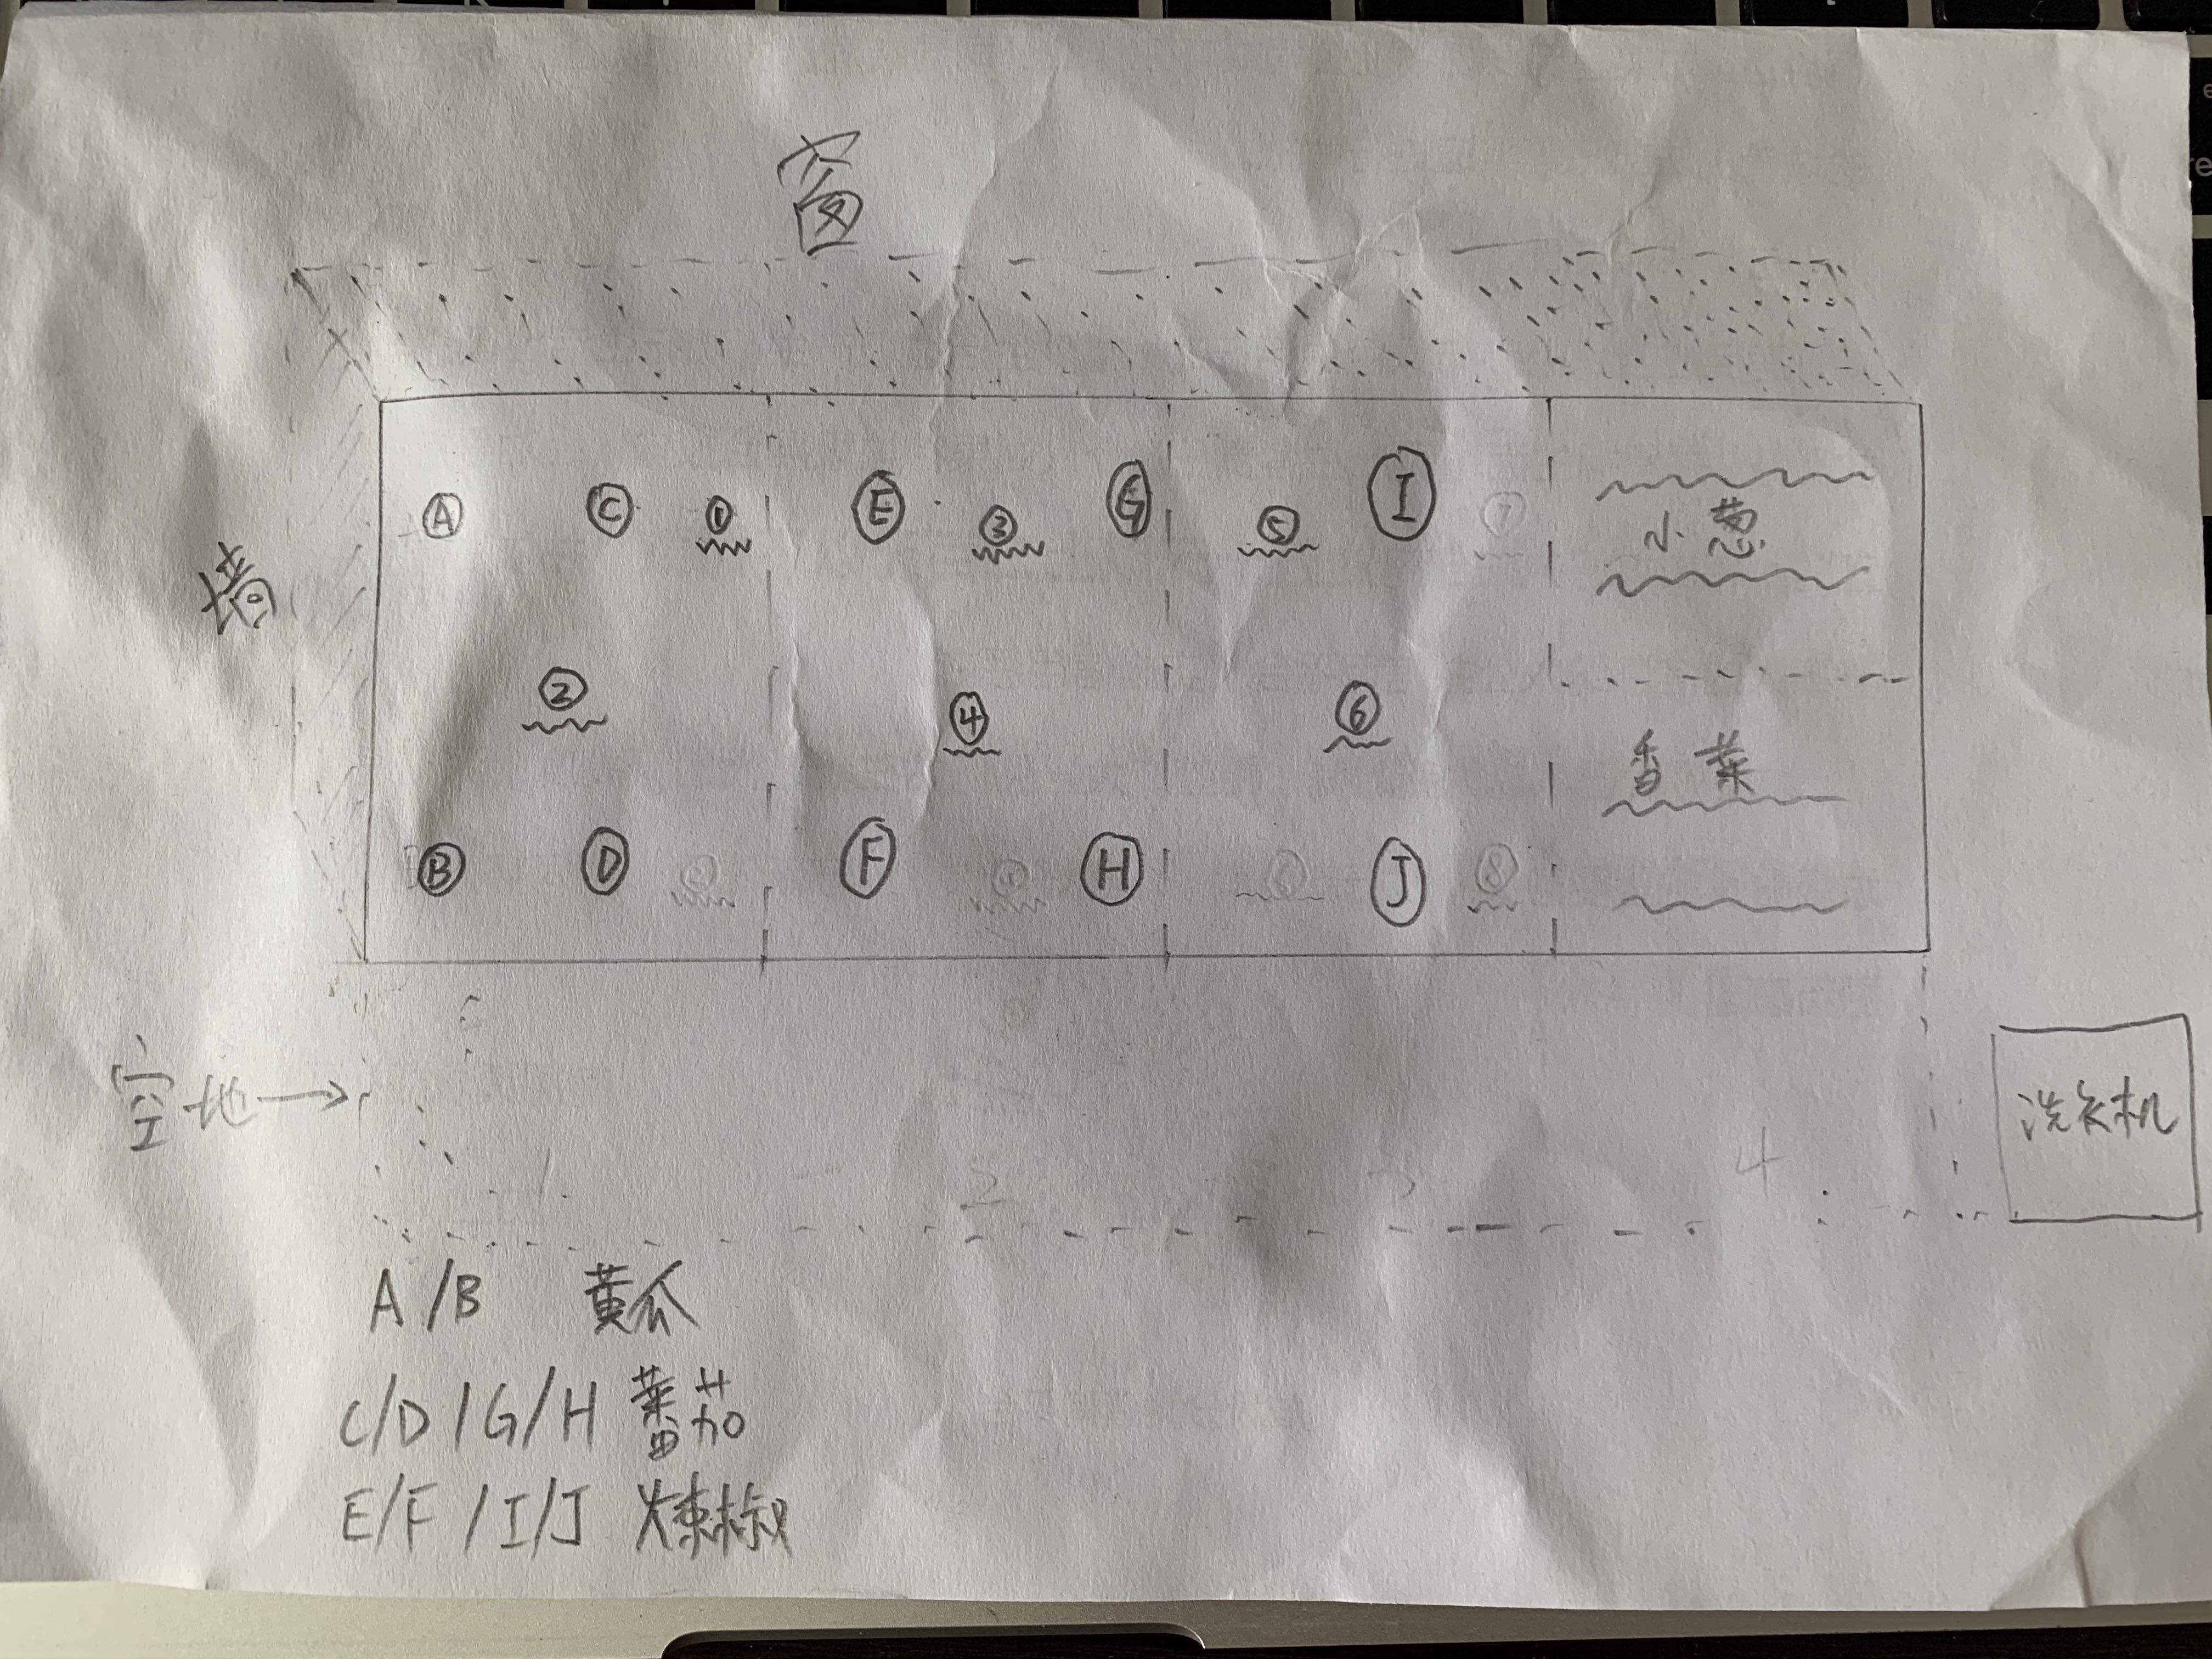 窗
墙
A C ① E ③ G ⑤ I ⑦
小葱
② ④ ⑥
香菜
B D F H J ⑧
空地→
洗衣机
2 3 4
A/B 黄瓜
C/D/G/H 蕃茄
E/F/I/J 辣椒